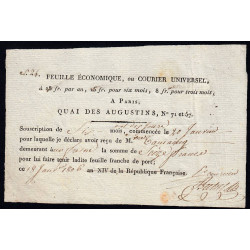 FEUILLE ÉCONOMIQUE, ou COURIER UNIVERSEL,
à 48 fr. par an, 26 fr. pour six mois, 8 fr. pour trois mois,
A Paris,
QUAI DES AUGUSTINS, Nos 71 et 57.
Souscription de Six mois, commencée le 20 Janvier
pour laquelle je déclare avoir reçu de M.
demeurant la somme de Seize francs
pour lui faire tenir ladite feuille franche de port;
ce 18 Janv 1806 an XIV de la République Française.